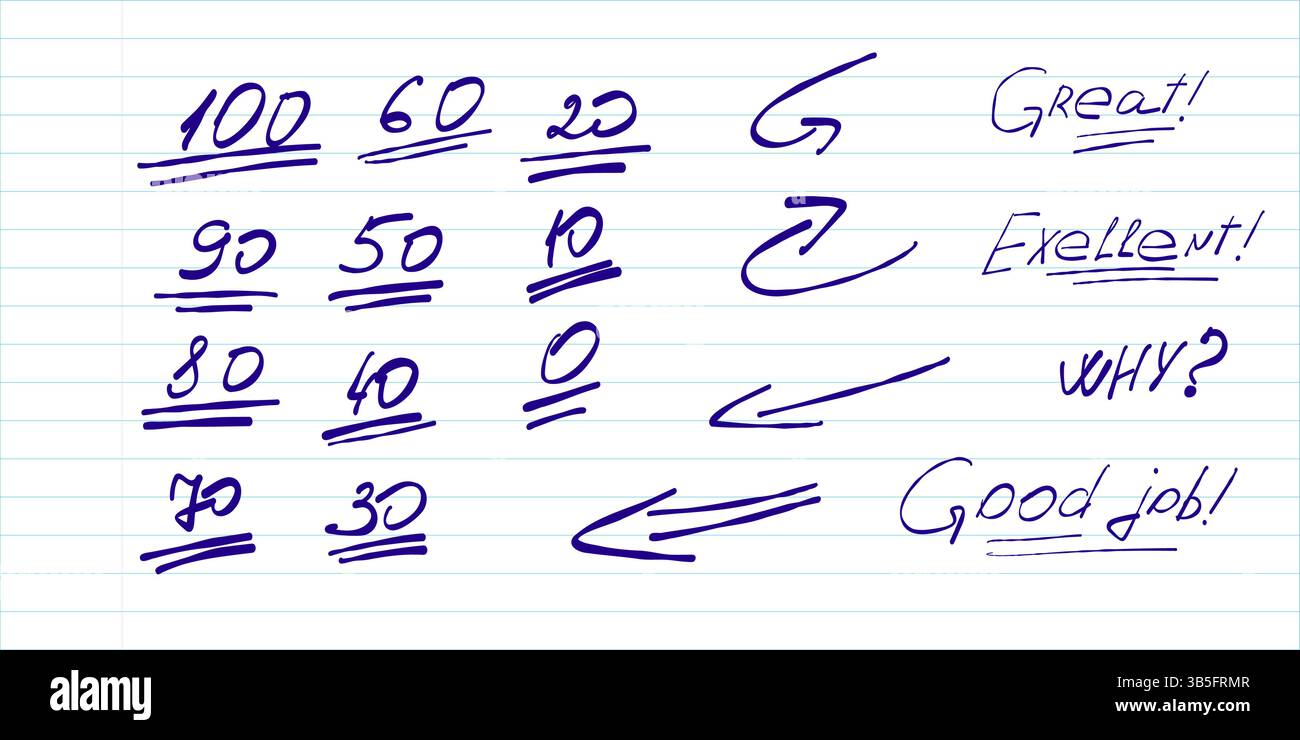 100 60 20 Great!
90 50 10 Exellent!
80 40 0 WHY?
70 30 Good job!
alamy
Image ID: 3B5FRMR
www.alamy.com